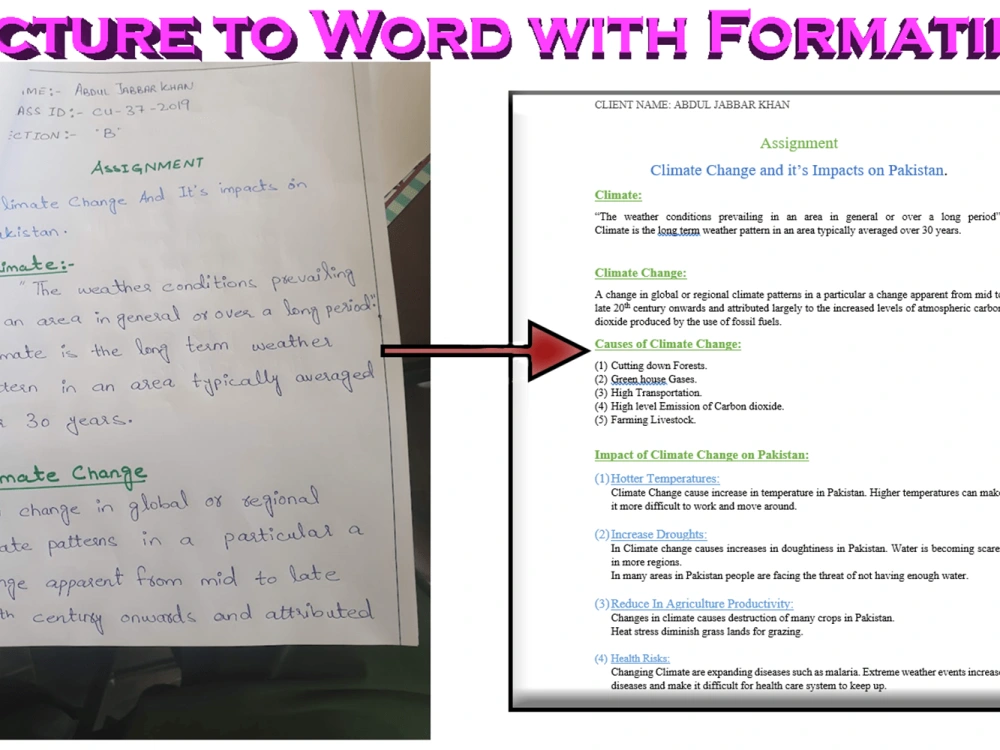 CTURE TO WORD WITH FORMATI
ME:- ABDUL JABBAR KHAN
ASS ID:- CU-37-2019
CTION:- "B"
ASSIGNMENT
limate Change And It's impacts on
akistan.
imate:-
"The weather conditions prevailing
an area in general or over a long period".
mate is the long term weather
tern in an area typically averaged
30 years.
mate Change
change in global or regional
ate patterns in a particular a
nge apparent from mid to late
th century onwards and attributed
CLIENT NAME: ABDUL JABBAR KHAN
Assignment
Climate Change and it's Impacts on Pakistan.
Climate:
"The weather conditions prevailing in an area in general or over a long period"
Climate is the long term weather pattern in an area typically averaged over 30 years.
Climate Change:
A change in global or regional climate patterns in a particular a change apparent from mid to
late 20th century onwards and attributed largely to the increased levels of atmospheric carbon
dioxide produced by the use of fossil fuels.
Causes of Climate Change:
(1) Cutting down Forests.
(2) Green house Gases.
(3) High Transportation.
(4) High level Emission of Carbon dioxide.
(5) Farming Livestock.
Impact of Climate Change on Pakistan:
(1) Hotter Temperatures:
Climate Change cause increase in temperature in Pakistan. Higher temperatures can make
it more difficult to work and move around.
(2) Increase Droughts:
In Climate change causes increases in doughtiness in Pakistan. Water is becoming scare
in more regions.
In many areas in Pakistan people are facing the threat of not having enough water.
(3) Reduce In Agriculture Productivity:
Changes in climate causes destruction of many crops in Pakistan.
Heat stress diminish grass lands for grazing.
(4) Health Risks:
Changing Climate are expanding diseases such as malaria. Extreme weather events increase
diseases and make it difficult for health care system to keep up.